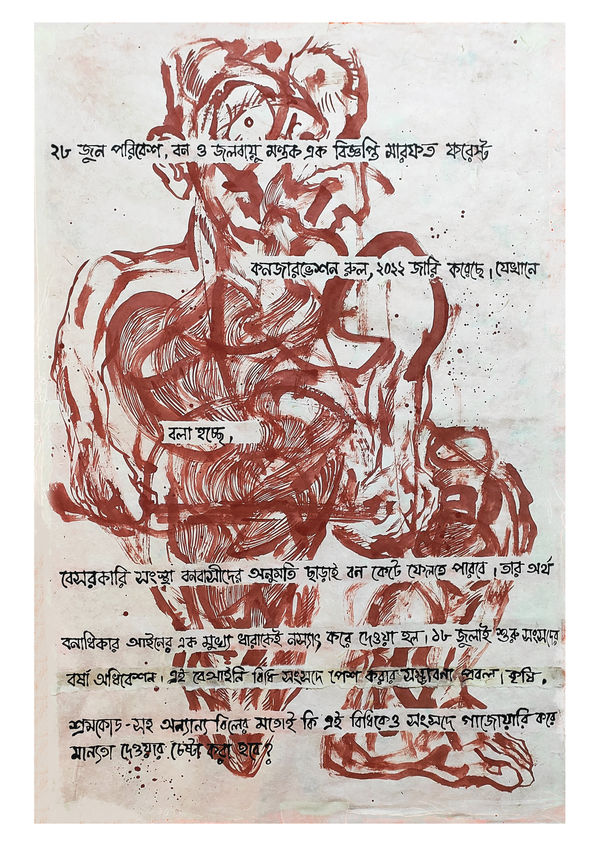 ২৮ জুন পরিবেশ, বন ও জলবায়ু মন্ত্রক এক বিজ্ঞপ্তি মারফত ফরেস্ট
কনজারভেশন রুল, ২০২২ জারি করেছে। যেখানে
বলা হচ্ছে,
বেসরকারি সংস্থা বনবাসীদের অনুমতি ছাড়াই বন কেটে ফেলতে পারবে। তার অর্থ
বনাধিকার আইনের এক মুখ্য ধারাকেই নস্যাৎ করে দেওয়া হল। ১৮ জুলাই শুরু সংসদের
বর্ষা অধিবেশন। এই বেআইনি বিধি সংসদে পেশ করার সম্ভাবনা প্রবল। কৃষি,
শ্রমকোড-সহ অন্যান্য বিলের মতোই কি এই বিধিকেও সংসদে গাজোয়ারি করে
মান্যতা দেওয়ার চেষ্টা করা হবে?